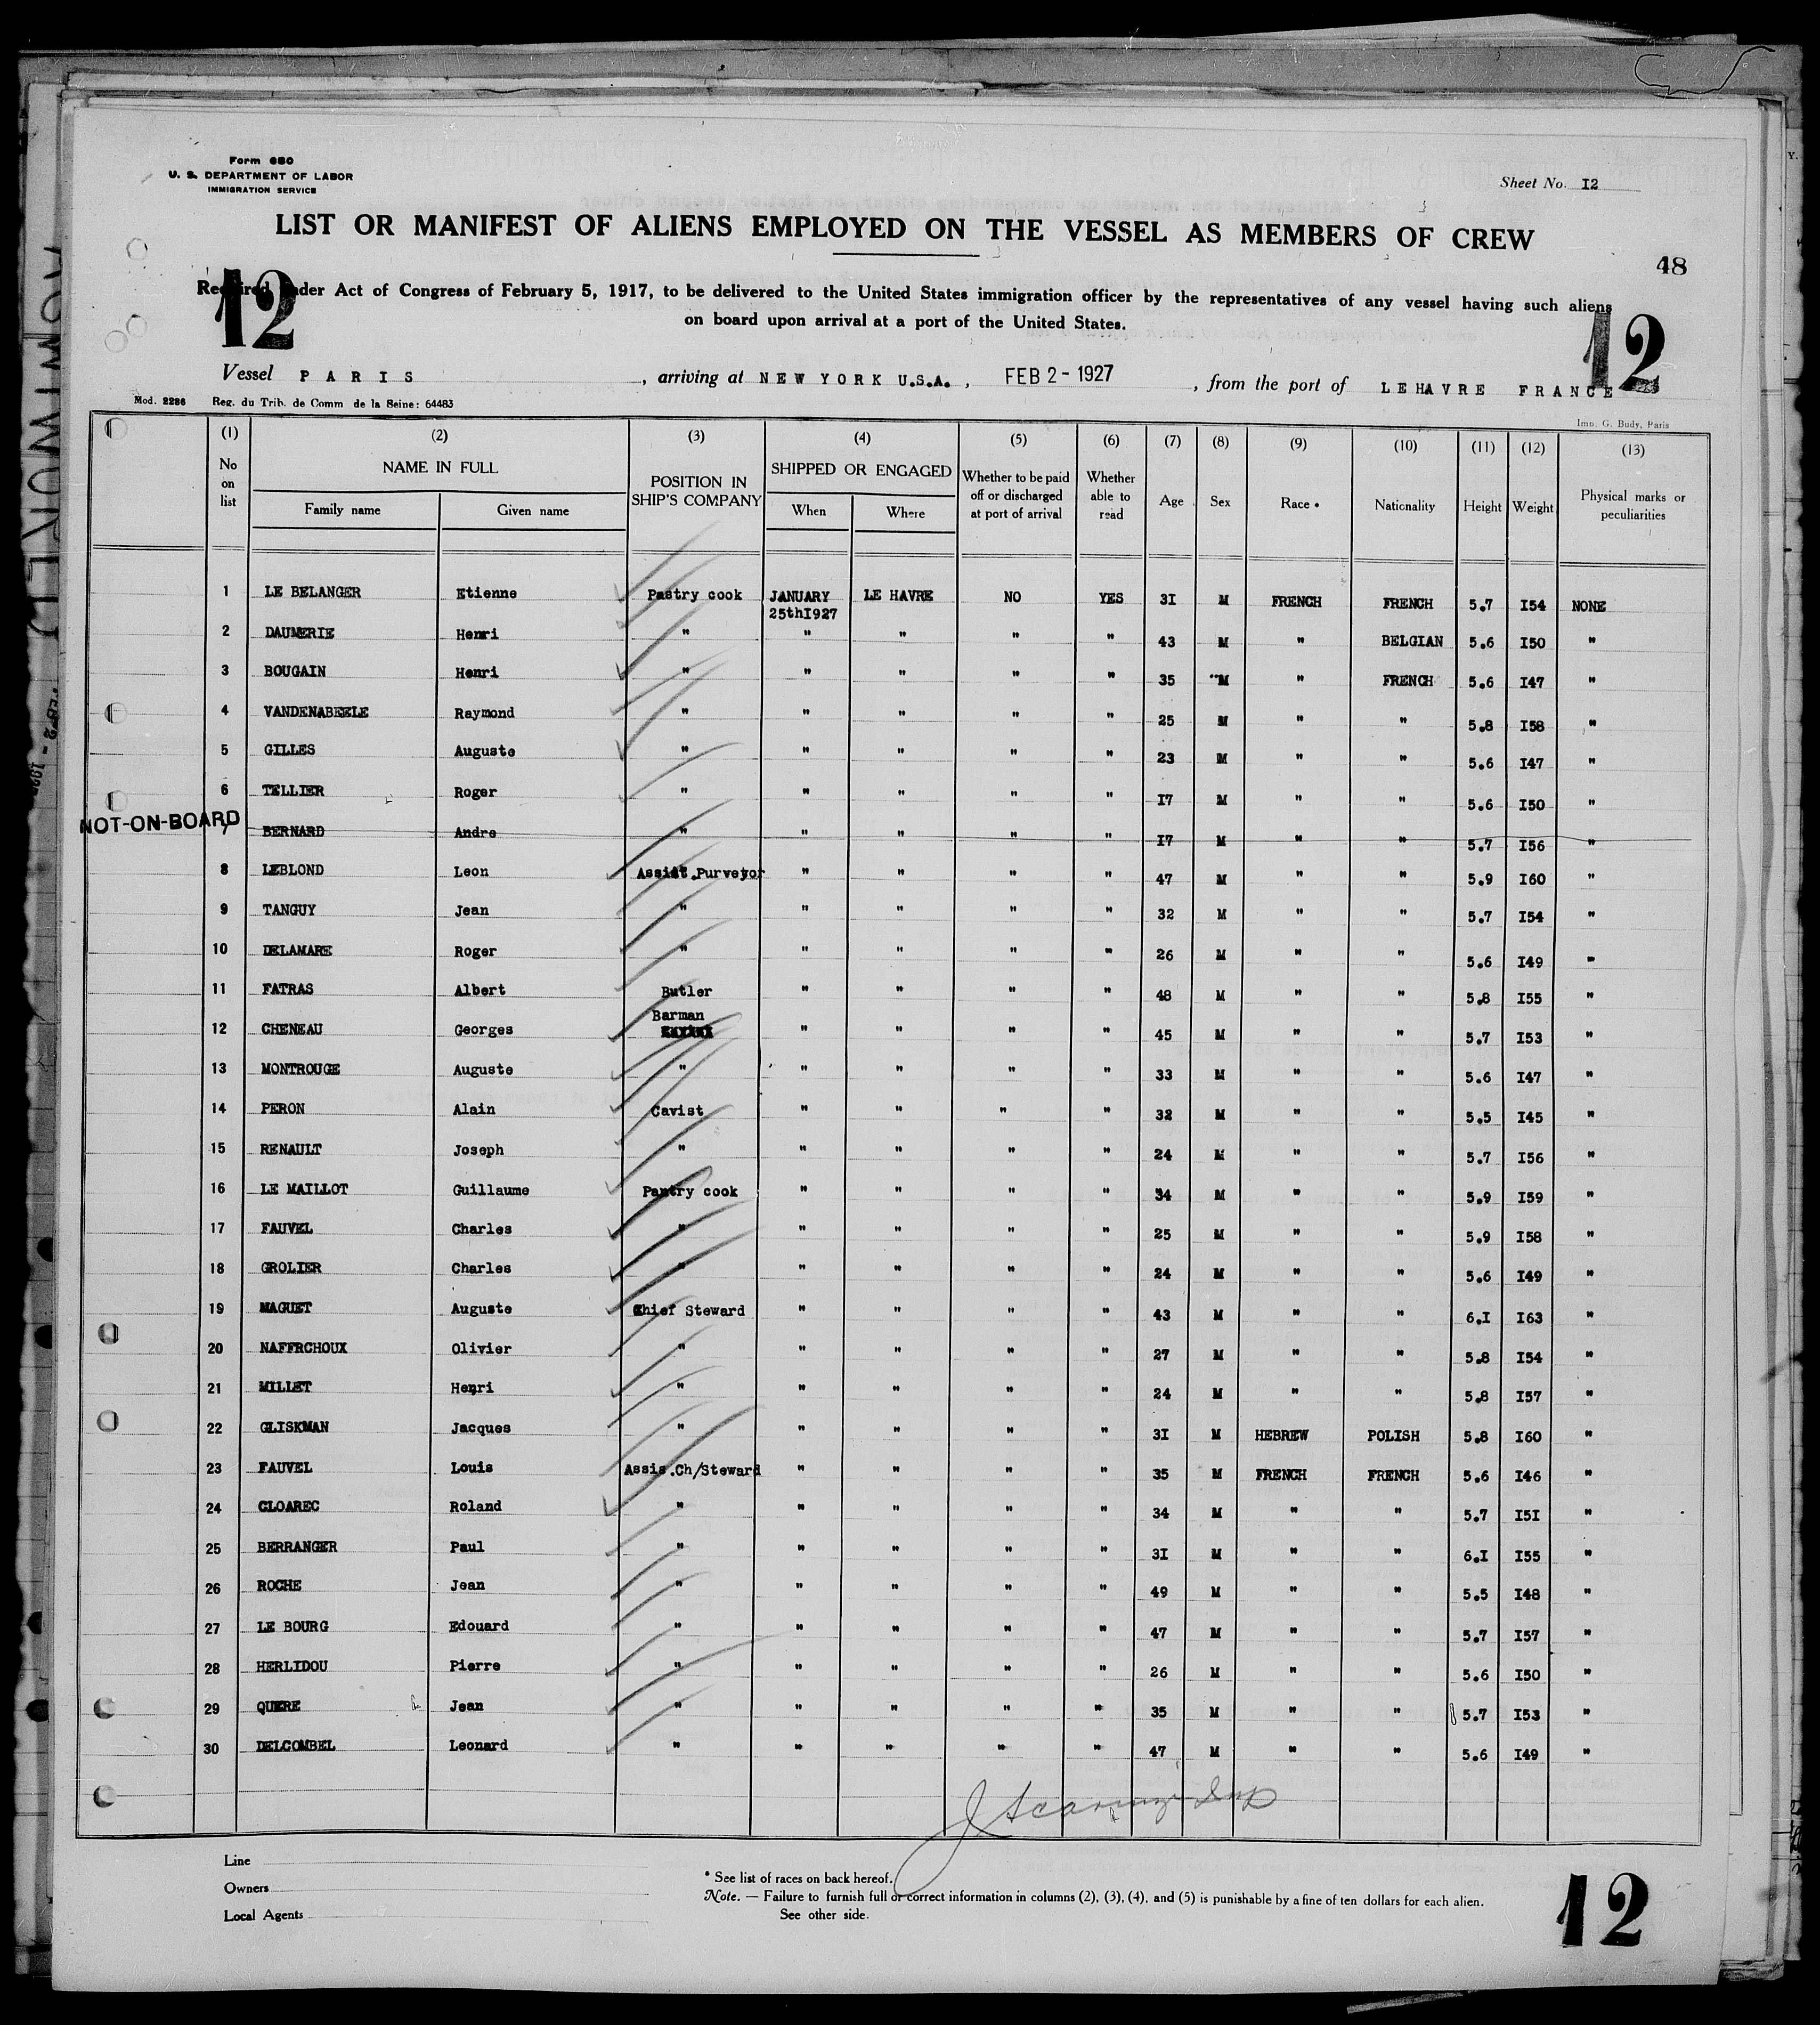 Form 680
U. S. DEPARTMENT OF LABOR
IMMIGRATION SERVICE
Sheet No. I2
LIST OR MANIFEST OF ALIENS EMPLOYED ON THE VESSEL AS MEMBERS OF CREW
48
12
Required under Act of Congress of February 5, 1917, to be delivered to the United States immigration officer by the representatives of any vessel having such aliens
on board upon arrival at a port of the United States.
12
Vessel PARIS, arriving at NEW YORK U.S.A., FEB 2 - 1927, from the port of LE HAVRE FRANCE
Mod. 2286 Reg. du Trib. de Comm de la Seine: 64483
Imp. G. Budy, Paris
(1) (2) (3) (4) (5) (6) (7) (8) (9) (10) (11) (12) (13)
No on list NAME IN FULL POSITION IN SHIP'S COMPANY SHIPPED OR ENGAGED Whether to be paid off or discharged at port of arrival Whether able to read Age Sex Race * Nationality Height Weight Physical marks or peculiarities
Family name Given name When Where
1 LE BELANGER Etienne Pastry cook JANUARY 25thI927 LE HAVRE NO YES 3I M FRENCH FRENCH 5.7 I54 NONE
2 DAUMERIE Henri " " " " " 43 M " BELGIAN 5.6 I50 "
3 BOUGAIN Henri " " " " " 35 M " FRENCH 5.6 I47 "
4 VANDENABEELE Raymond " " " " " 25 M " " 5.8 I58 "
5 GILLES Auguste " " " " " 23 M " " 5.6 I47 "
6 TELLIER Roger " " " " " I7 M " " 5.6 I50 "
NOT-ON-BOARD
7 BERNARD Andre " " " " " I7 M " " 5.7 I56 "
8 LEBLOND Leon Assist.Purveyor " " " " 47 M " " 5.9 I60 "
9 TANGUY Jean " " " " " 32 M " " 5.7 I54 "
10 DELAMARE Roger " " " " " 26 M " " 5.6 I49 "
11 FATRAS Albert Butler " " " " 48 M " " 5.8 I55 "
12 CHENEAU Georges Barman " " " " 45 M " " 5.7 I53 "
13 MONTROUGE Auguste " " " " " 33 M " " 5.6 I47 "
14 PERON Alain Cavist " " " " 32 M " " 5.5 I45 "
15 RENAULT Joseph " " " " " 24 M " " 5.7 I56 "
16 LE MAILLOT Guillaume Pantry cook " " " " 34 M " " 5.9 I59 "
17 FAUVEL Charles " " " " " 25 M " " 5.9 I58 "
18 GROLIER Charles " " " " " 24 M " " 5.6 I49 "
19 MAGUET Auguste Chief Steward " " " " 43 M " " 6.I I63 "
20 NAFFRCHOUX Olivier " " " " " 27 M " " 5.8 I54 "
21 MILLET Henri " " " " " 24 M " " 5.8 I57 "
22 GLISKMAN Jacques " " " " " 3I M HEBREW POLISH 5.8 I60 "
23 FAUVEL Louis Assis.Ch/Steward " " " " 35 M FRENCH FRENCH 5.6 I46 "
24 CLOAREC Roland " " " " " 34 M " " 5.7 I5I "
25 BERRANGER Paul " " " " " 3I M " " 6.I I55 "
26 ROCHE Jean " " " " " 49 M " " 5.5 I48 "
27 LE BOURG Edouard " " " " " 47 M " " 5.7 I57 "
28 HERLIDOU Pierre " " " " " 26 M " " 5.6 I50 "
29 QUERE Jean " " " " " 35 M " " 5.7 I53 "
30 DELCOMBEL Leonard " " " " " 47 M " " 5.6 I49 "
Line
Owners
Local Agents
* See list of races on back hereof.
Note. — Failure to furnish full or correct information in columns (2), (3), (4), and (5) is punishable by a fine of ten dollars for each alien.
See other side.
12